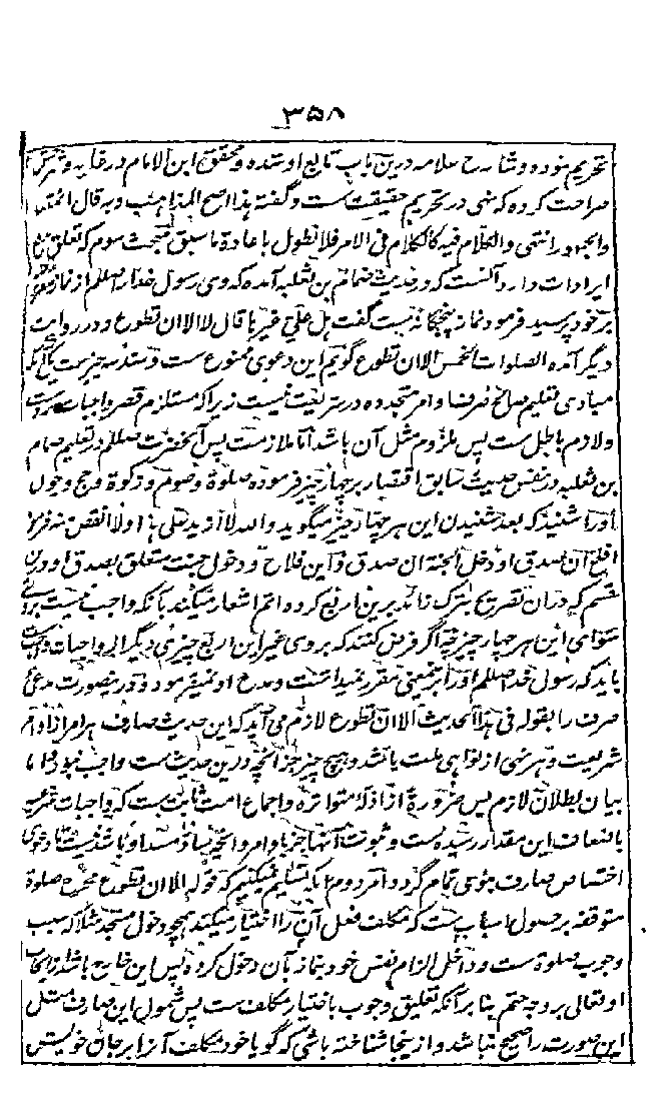 ۳۵۸
تحریم نموده و شارح علامه درین باب تابع او شده و محقق ابن الامام در غایه و شرح
صراحت کرده که نهی در تحریم حقیقت ست و گفته هذا اصح المذاهب و به قال ائمتنا
والجمهور انتهی والکلام فیه کالکلام فی الامر فلا نطول باعادة ما سبق مبحث سوم که تعلق
ایرادات دارد آنست که در حدیث ضمام بن ثعلبه آمده که وی رسول خدا را صلعم از نماز
بر خود پرسید فرمود نماز پنجگانه ست گفت هل علیّ غیرها قال لا الا ان تطوع و در روایت
دیگر آمده الصلوات الخمس الا ان تطوع گویم این دعوی ممنوع ست و سند سه چیز ست یکی آنکه
مبادی تعلیم صالح صرف ما و امر متجدده در شریعت نیست زیرا که مستلزم قصر واجبات
و لازم باطل ست پس ملزوم مثل آن باشد اما ملازمت پس آنحضرت صلعم در تعلیم ضمام
بن ثعلبه در نفس حدیث سابق اقتصار بر چهار چیز فرموده صلوة و صوم و زکوة و حج و چون
او را شنید که بعد شنیدن این هر چهار چیز میگوید والله لا ازید علی هذا ولا انقص منه فرمود
افلح ان صدق او دخل الجنة ان صدق و این فلاح و دخول جنت متعلق بصدق او در
قسم که دران تصریح بترک زائد برین اربع کرده اتم اشعار میکند بآنکه واجب نیست بروی
سوای این هر چهار چیز چه اگر فرض کنند که بروی غیر این اربع چیزی دیگر از واجبات
باید که رسول خدا صلعم او را بر چنین مقرر نمیداشت و مدح او نمیفرمود و درینصورت مدعی
صرف را بقوله فی هذا الحدیث الا ان تطوع لازم می آید که این حدیث صارف هر امر از اوامر
شریعت و هر نهی از نواهی ملت باشد و هیچ چیز جز آنچه درین حدیث ست واجب نبود اما
بیان بطلان لازم پس ضرورة از ادله متواتره و اجماع امت ثابت ست که واجبات شرعیه
باضعاف این مقدار رسیده ست و ثبوت آنها جز باوامر
اختصاص صارف بنوعی تمام گردد امر دوم آنکه تسلیم نمیکنیم که قوله الا ان تطوع مخرج صلوة
متوقفه بر حصول اسباب ست که مکلف فعل آن را اختیار میکند همچو دخول مسجد مثلا که سبب
وجوب صلوة ست و داخل الزام نفس خود بنماز بآن دخول کرده پس این خارج باشد از ایجاب
او تعالی بر وجه حتم بنا بر آنکه تعلیق وجوب باختیار مکلف ست پس شمول این صارف مثل
این صورت را صحیح نباشد و از ینجا شناخته باشی که گویا خود مکلف آنرا بر جان خویش